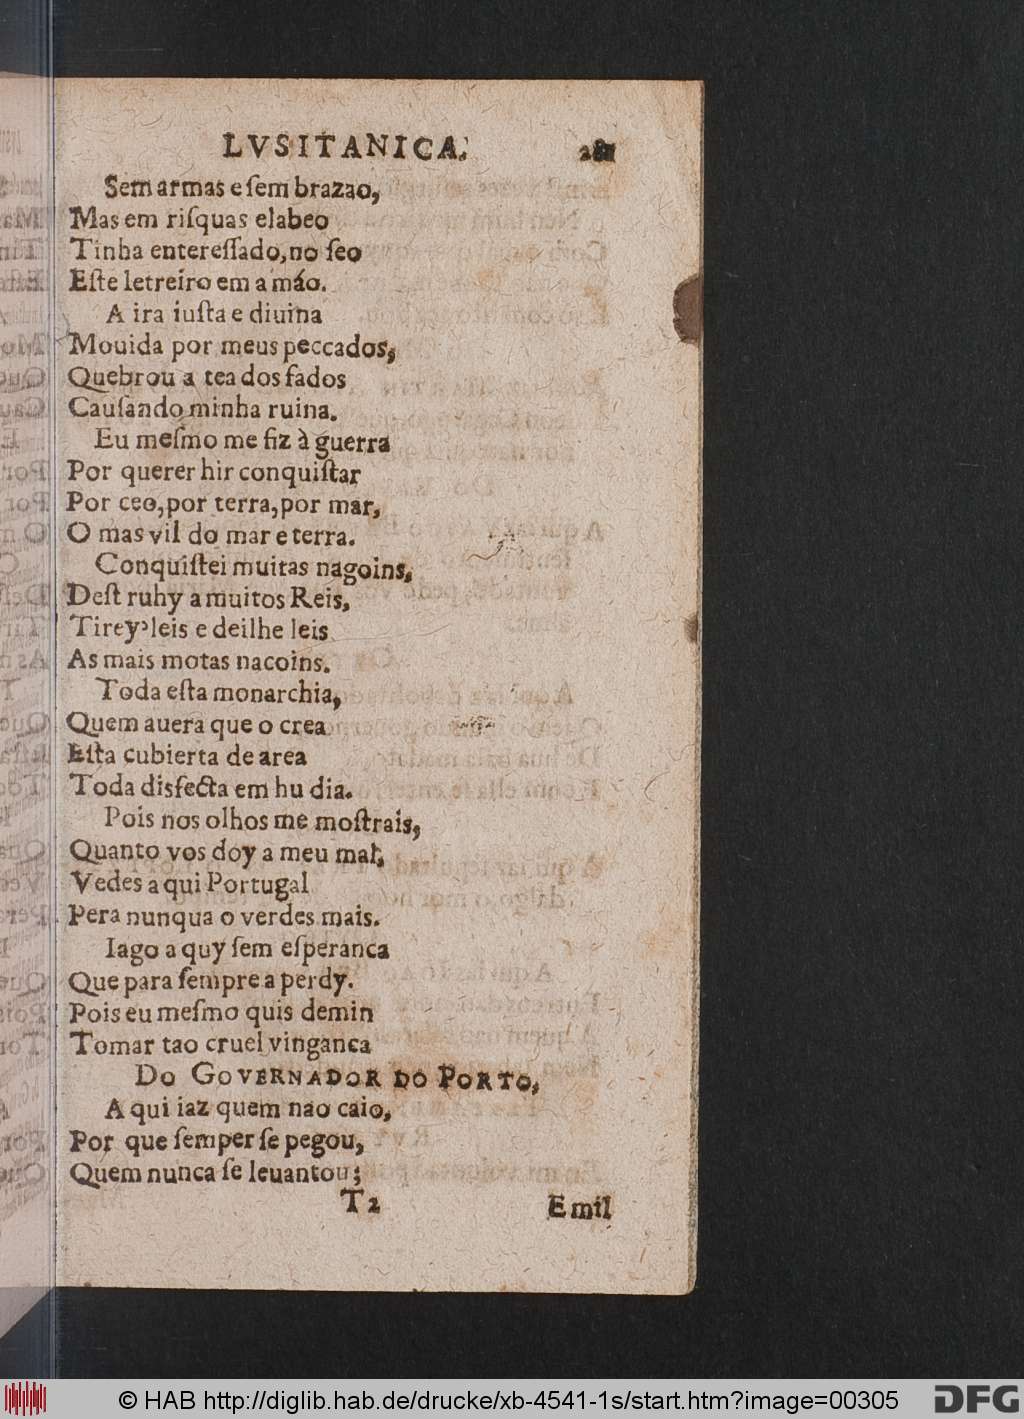 LVSITANICA.
Sem armas e ſem brazao,
Mas em riſquas elabeo
Tinha entereſſado, no ſeo
Eſte letreiro em a máo.
A ira iuſta e diuina
Mouida por meus peccados,
Quebrou a tea dos fados
Cauſando minha ruina.
Eu meſmo me fiz à guerra
Por querer hir conquiſtar
Por ceo, por terra, por mar,
O mas vil do mar e terra.
Conquiſtei muitas nagoins,
Deſt ruhy a muitos Reis,
Tirey leis e deilhe leis
As mais motas nacoins.
Toda eſta monarchia,
Quem auera que o crea
Eſta cubierta de area
Toda disfecta em hu dia.
Pois nos olhos me moſtrais,
Quanto vos doy a meu mal,
Vedes a qui Portugal
Pera nunqua o verdes mais.
Iago a quy ſem eſperanca
Que para ſempre a perdy.
Pois eu meſmo quis demin
Tomar tao cruel vinganca
DO GOVERNADOR DO PORTO,
A qui iaz quem nao caio,
Por que ſemper ſe pegou,
Quem nunca ſe leuantou;
T2 Emil
© HAB http://diglib.hab.de/drucke/xb-4541-1s/start.htm?image=00305 DFG